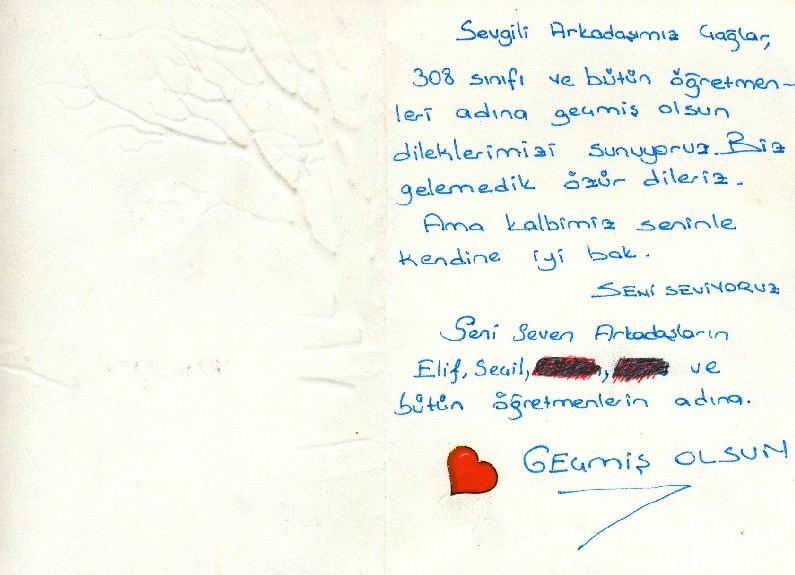 Sevgili Arkadaşımız Çağlar,
308 sınıfı ve bütün öğretmen-
leri adına geçmiş olsun
dileklerimizi sunuyoruz. Biz
gelemedik özür dileriz.
Ama kalbimiz seninle
kendine iyi bak.
SENİ SEVİYORUZ
Seni Seven Arkadaşların
Elif, Seçil, , ve
bütün öğretmenlerin adına.
GEÇMİŞ OLSUN